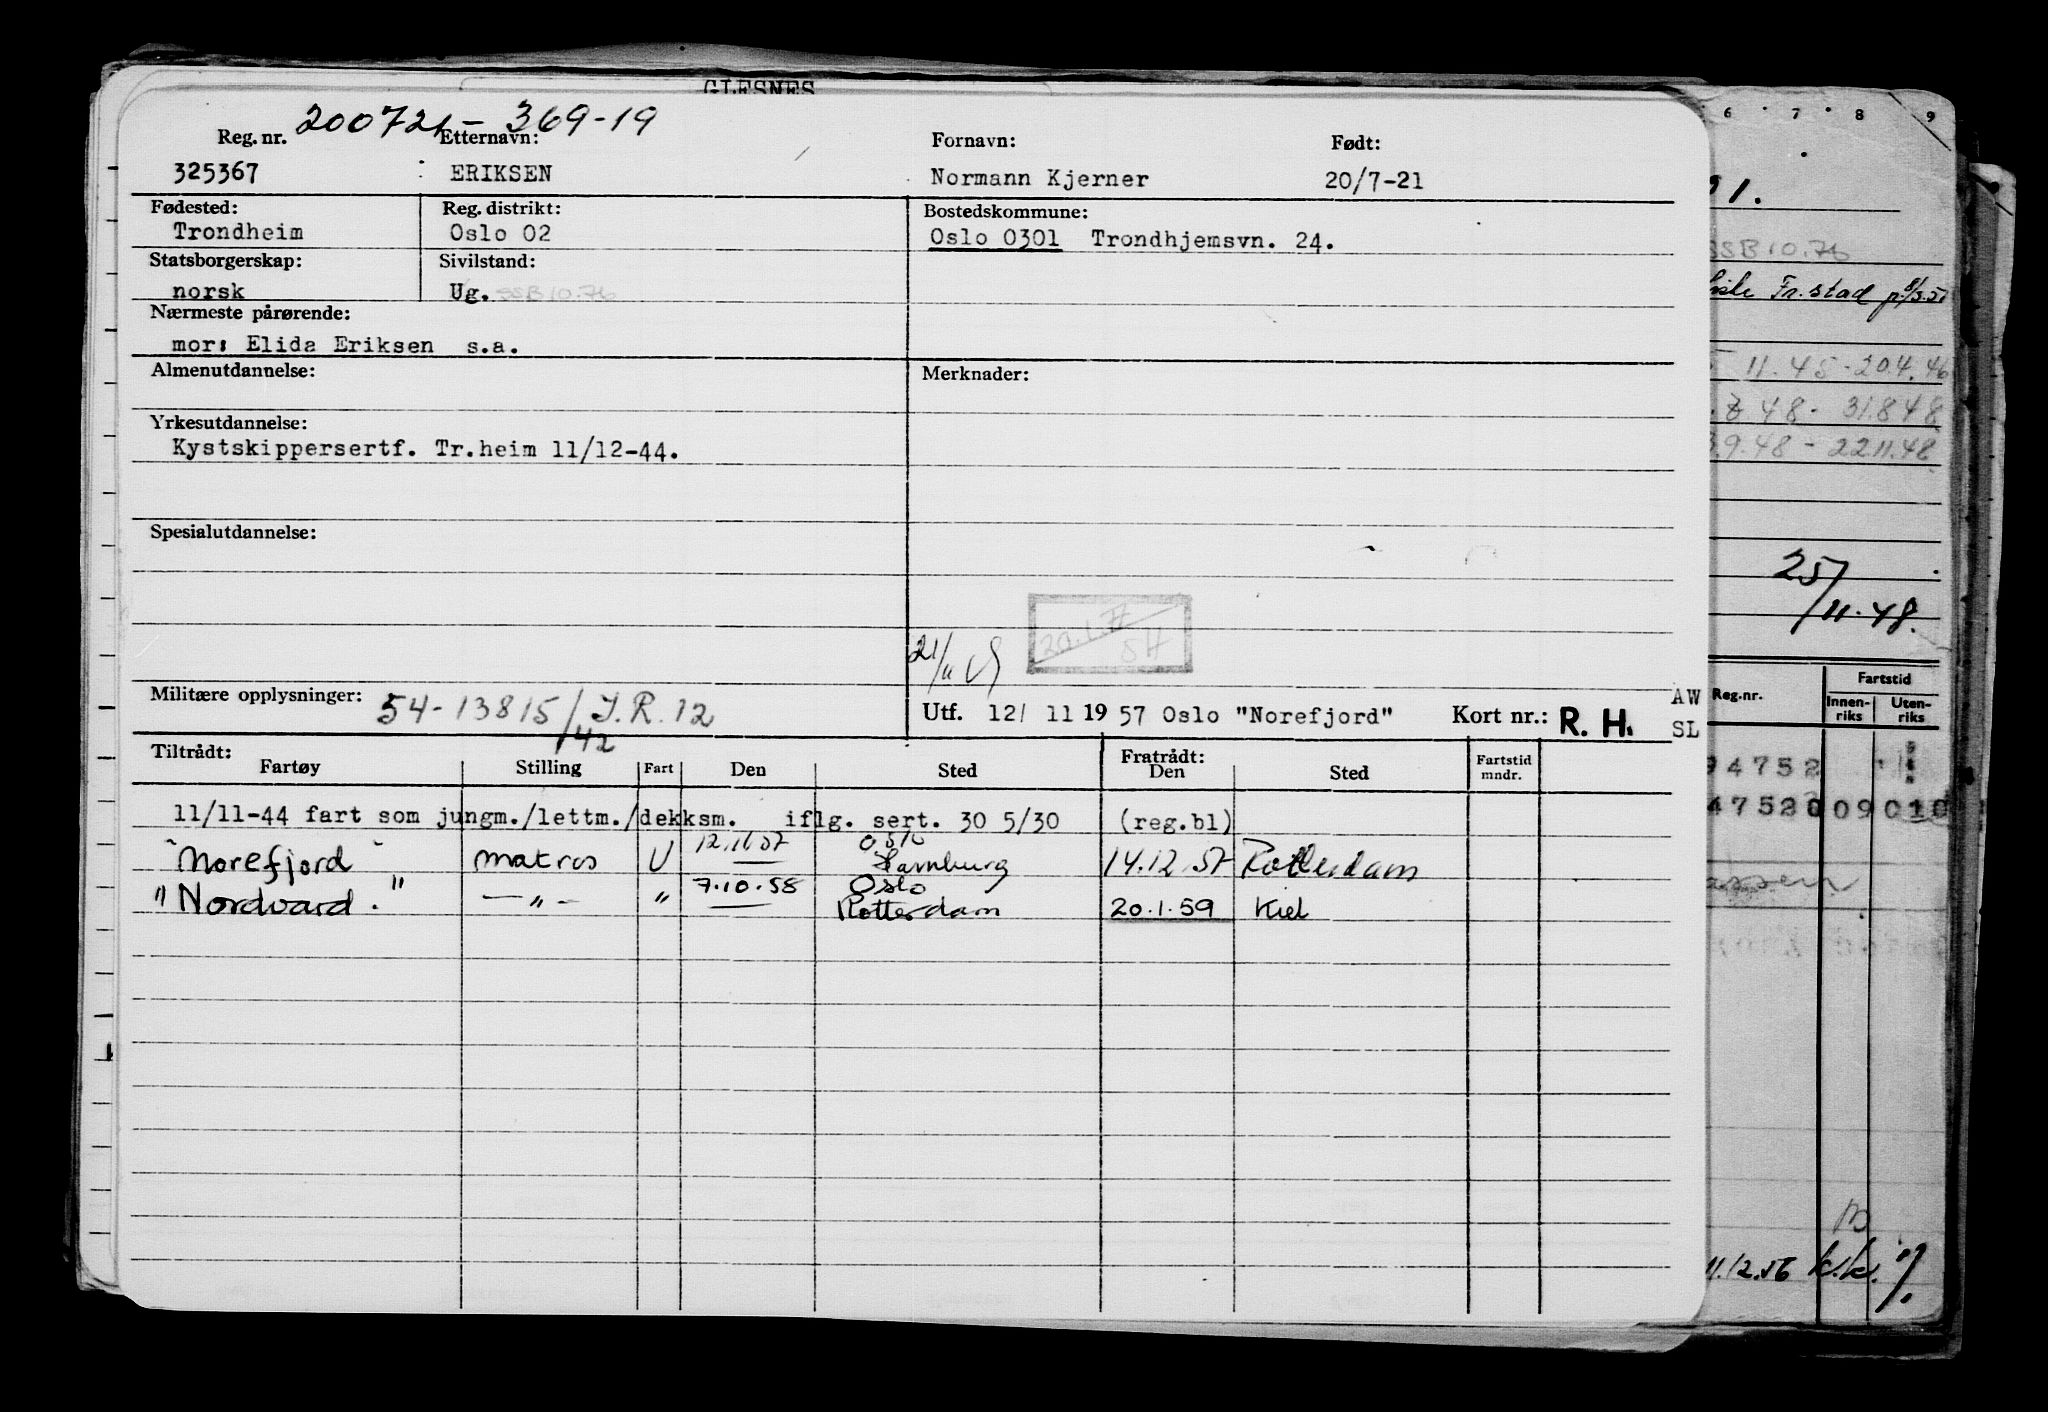 GLESNES
200721 - 369-19
Reg. nr. Etternavn: Fornavn: Født:
325367 ERIKSEN Normann Kjerner 20/7-21
Fødested: Reg. distrikt: Bostedskommune:
Trondheim Oslo 02 Oslo 0301 Trondhjemsvn. 24.
Statsborgerskap: Sivilstand:
norsk Ug. SSB 10.76
Nærmeste pårørende:
mor: Elida Eriksen s.a.
Almenutdannelse: Merknader:
Yrkesutdannelse:
Kystskippersertf. Tr.heim 11/12-44.
Spesialutdannelse:
20.1.77
SH
21/11
Militære opplysninger: 54-13815/42 I.R. 12
Utf. 12/ 11 19 57 Oslo "Norefjord" Kort nr.: R. H. AW SL
Tiltrådt: Fratrådt:
Fartøy Stilling Fart Den Sted Den Sted Fartstid mndr.
11/11-44 fart som jungm./lettm./dekksm. iflg. sert. 30 5/30 (reg.bl)
12.11.57 Oslo
"Norefjord" matros U Hamburg 14.12.57 Rotterdam
7.10.58 Oslo
"Nordvard." —"— " Rotterdam 20.1.59 Kiel
6 7 8 9
1.
SSB 10.76
Fr.stad
11.45 - 20.4.46
48 - 31.8.48
9.48 - 22.11.48
25/11.48.
Reg.nr. Fartstid
Innen-riks Uten-riks
94752
47520 09 010
11.12.56 k.k.